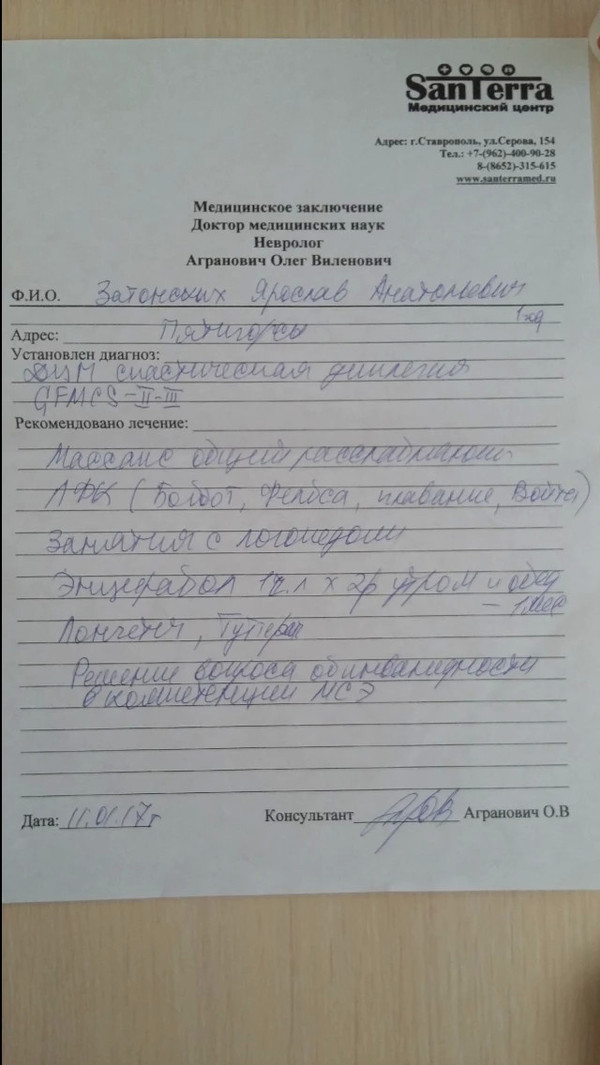 SanTerra
Медицинский центр
Адрес: г.Ставрополь, ул.Серова, 154
Тел.: +7-(962)-400-90-28
8-(8652)-315-615
www.santerramed.ru
Медицинское заключение
Доктор медицинских наук
Невролог
Агранович Олег Виленович
Ф.И.О. Затонских Ярослав Анатольевич
1 год
Адрес: Пятигорск
Установлен диагноз:
ДЦП спастическая диплегия
GFMCS-II-III
Рекомендовано лечение:
Массаж общий расслабляющий
ЛФК (Бобот, Фелпса, плавание, Войта)
Занятия с логопедом
Энцефабол 1ч.л х 2р утром и обед
- 1 мес
Лонгеты, Тутора
Решение вопроса об инвалидности
в компетенции МСЭ
Дата: 11.01.17г Консультант Агранович О.В